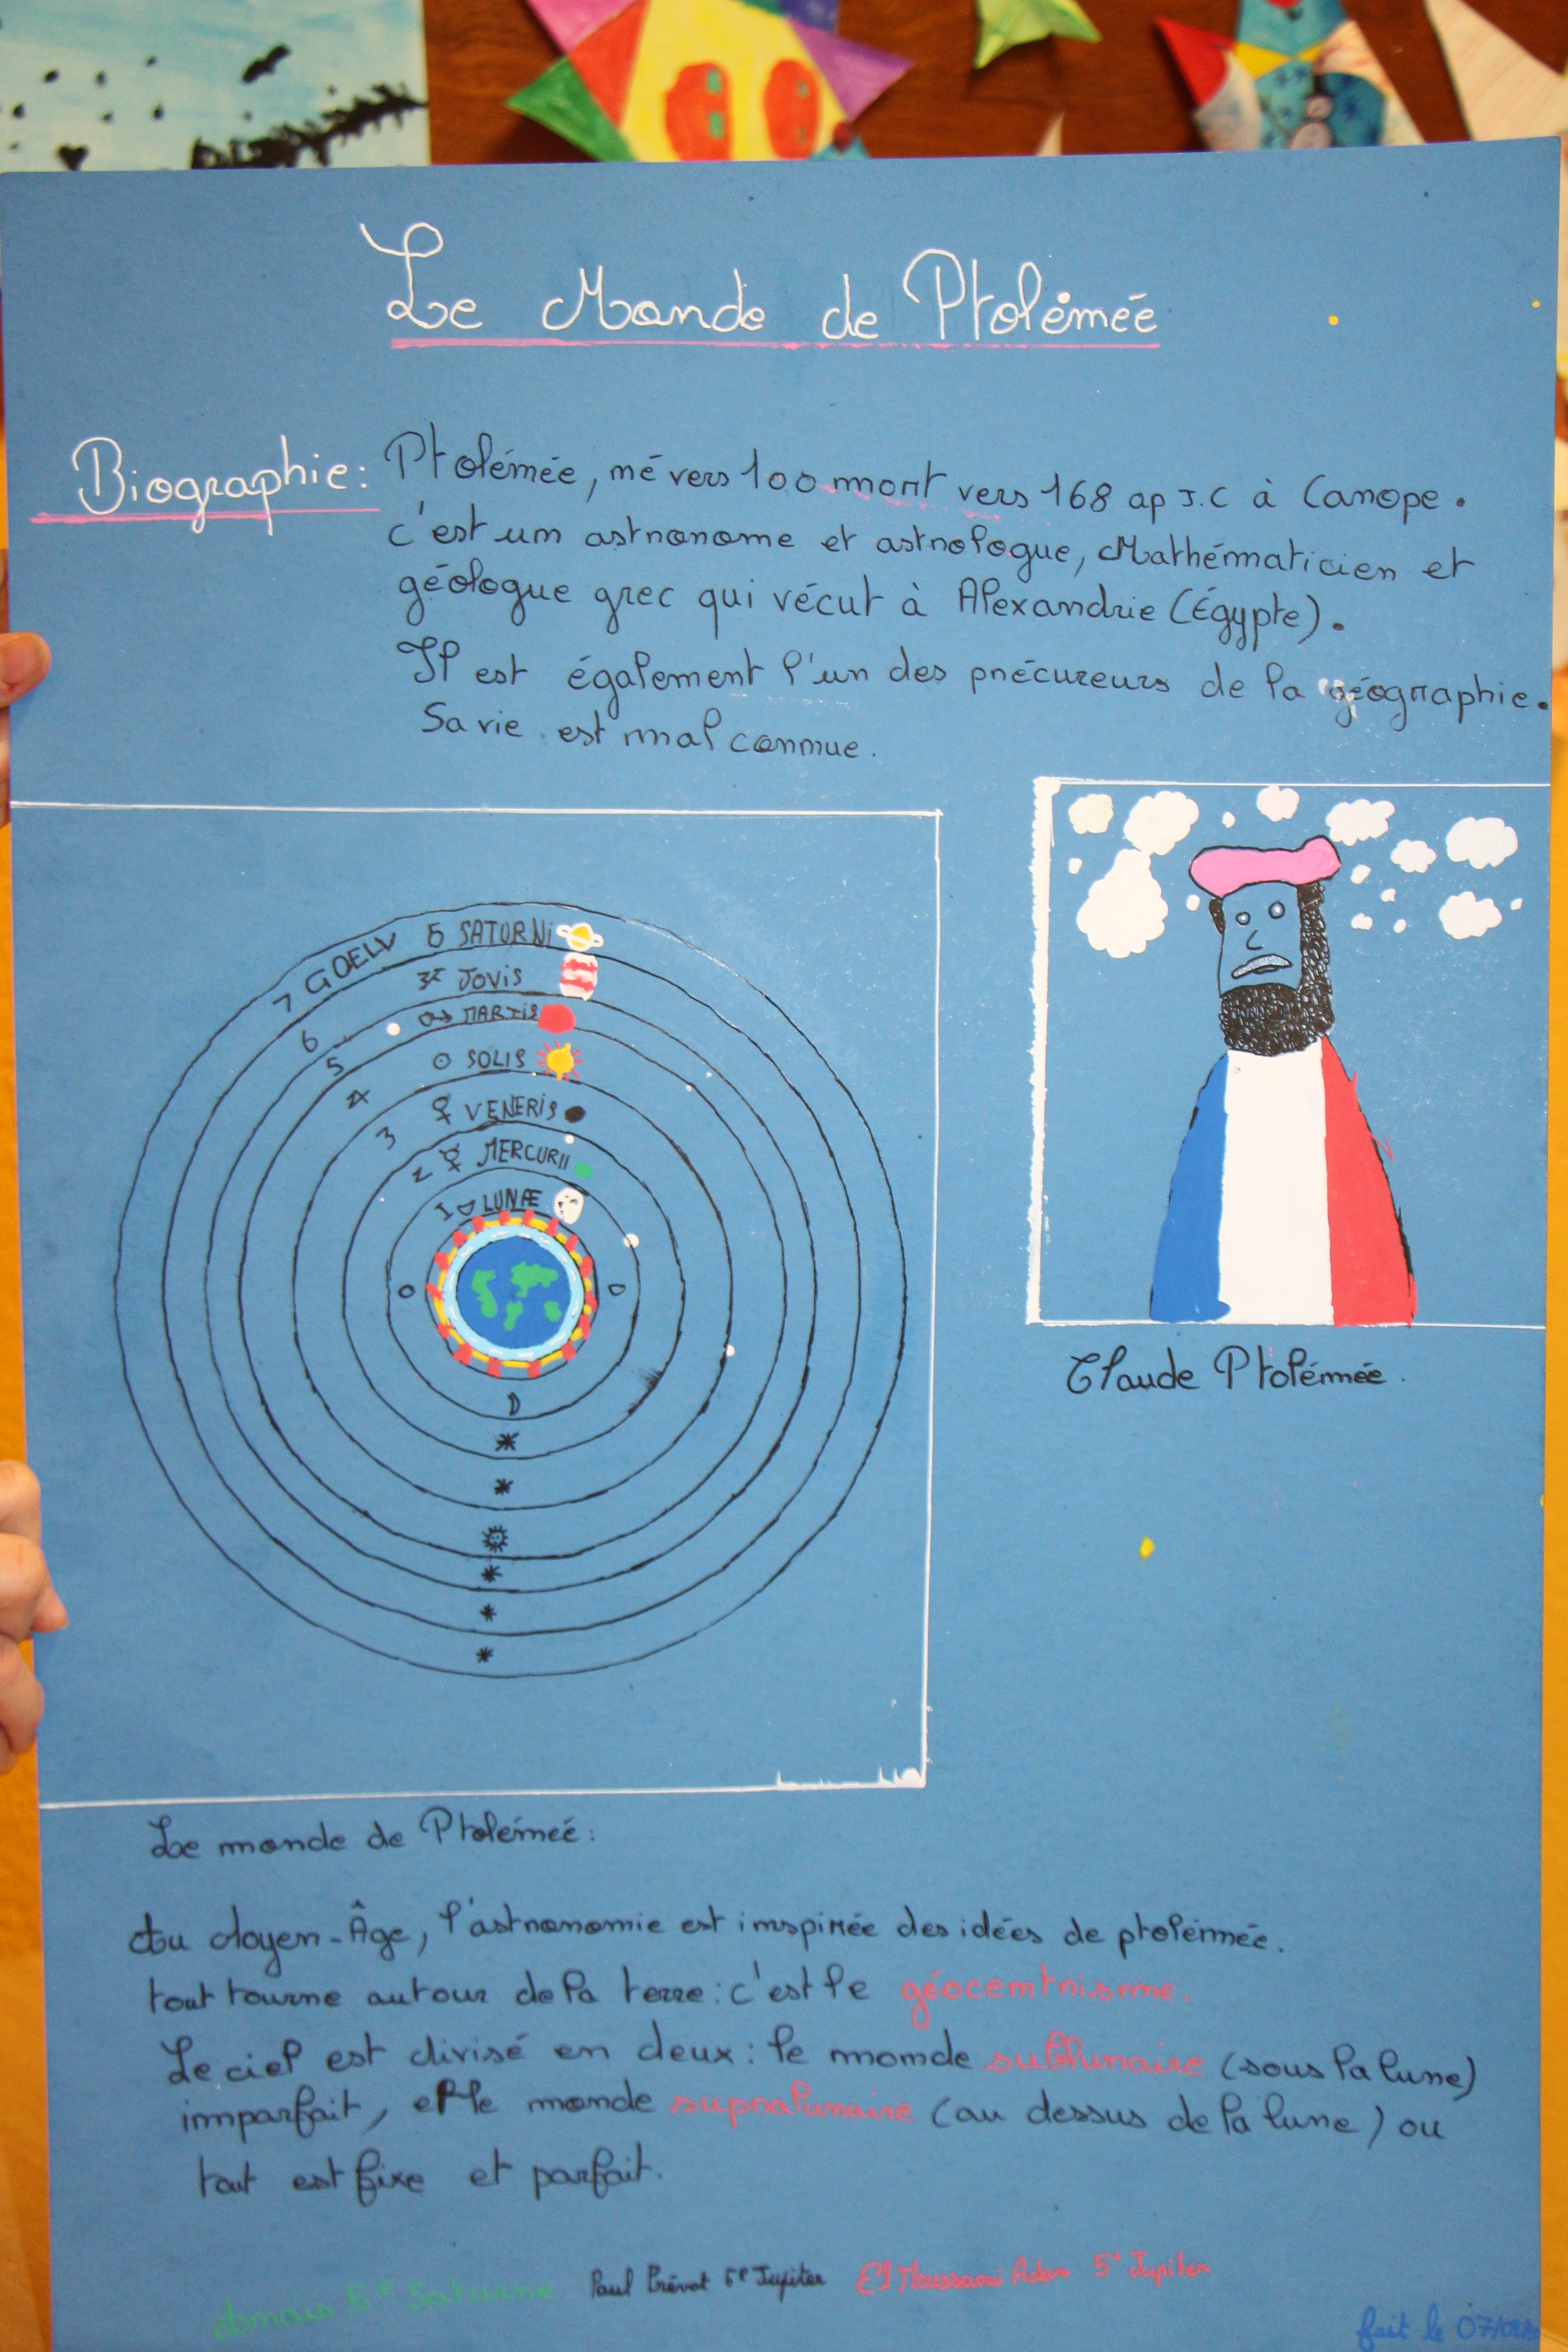 Le Monde de Ptolémée
Biographie : Ptolémée, né vers 100 mort vers 168 ap J.C à Canope.
c'est un astronome et astrologue, Mathématicien et
géologue grec qui vécut à Alexandrie (Égypte).
Il est également l'un des précureurs de la géographie.
Sa vie est mal connue.
7 GOELV SATURNi
6 JOVIS
5 MARTIS
4 SOLIS
3 VENERIS
2 MERCURII
1 LUNÆ
Claude Ptolémée.
Le monde de Ptolémeé :
Au Moyen-Âge, l'astronomie est inspirée des idées de ptolémée.
tout tourne autour de la terre : c'est le géocentrisme.
Le ciel est divisé en deux : le monde sublunaire (sous la lune)
imparfait, et le monde supralunaire (au dessus de la lune) ou
tout est fixe et parfait.
5e Saturne Paul Prévot 5e Jupiter El Moussaoui Adam 5e Jupiter
fait le 07/